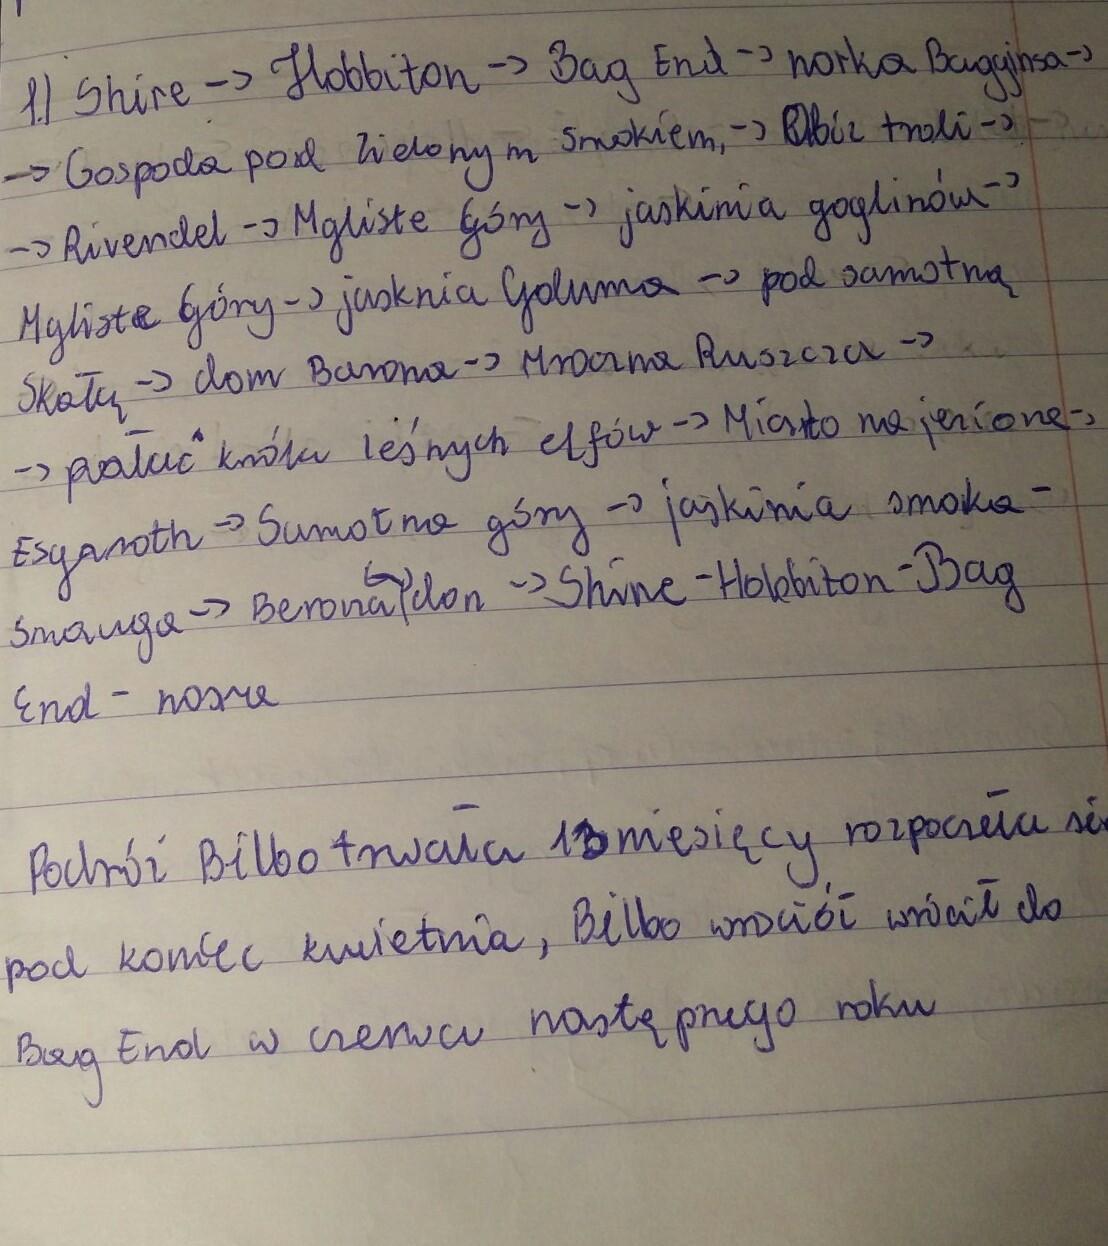 1.) Shire -> Hobbiton -> Bag End -> norka Bagginsa ->
-> Gospoda pod Zielonym smokiem, -> Obóz troli ->
-> Rivendel -> Mgliste Góry -> jaskinia goglinów ->
Mgliste Góry -> jasknia Goluma -> pod samotną
Skałą -> dom Barona -> Mroczna Puszcza ->
-> pałac króla leśnych elfów -> Miasto na jeziorze ->
Esgaroth -> Samotna góry -> jaskinia smoka -
Smauga -> Berona dom -> Shire - Hobbiton - Bag
End - nora
Podróż Bilbo trwała 13 miesięcy rozpoczęła się
pod koniec kwietnia, Bilbo wrócił do
Bag End w czerwcu następnego roku